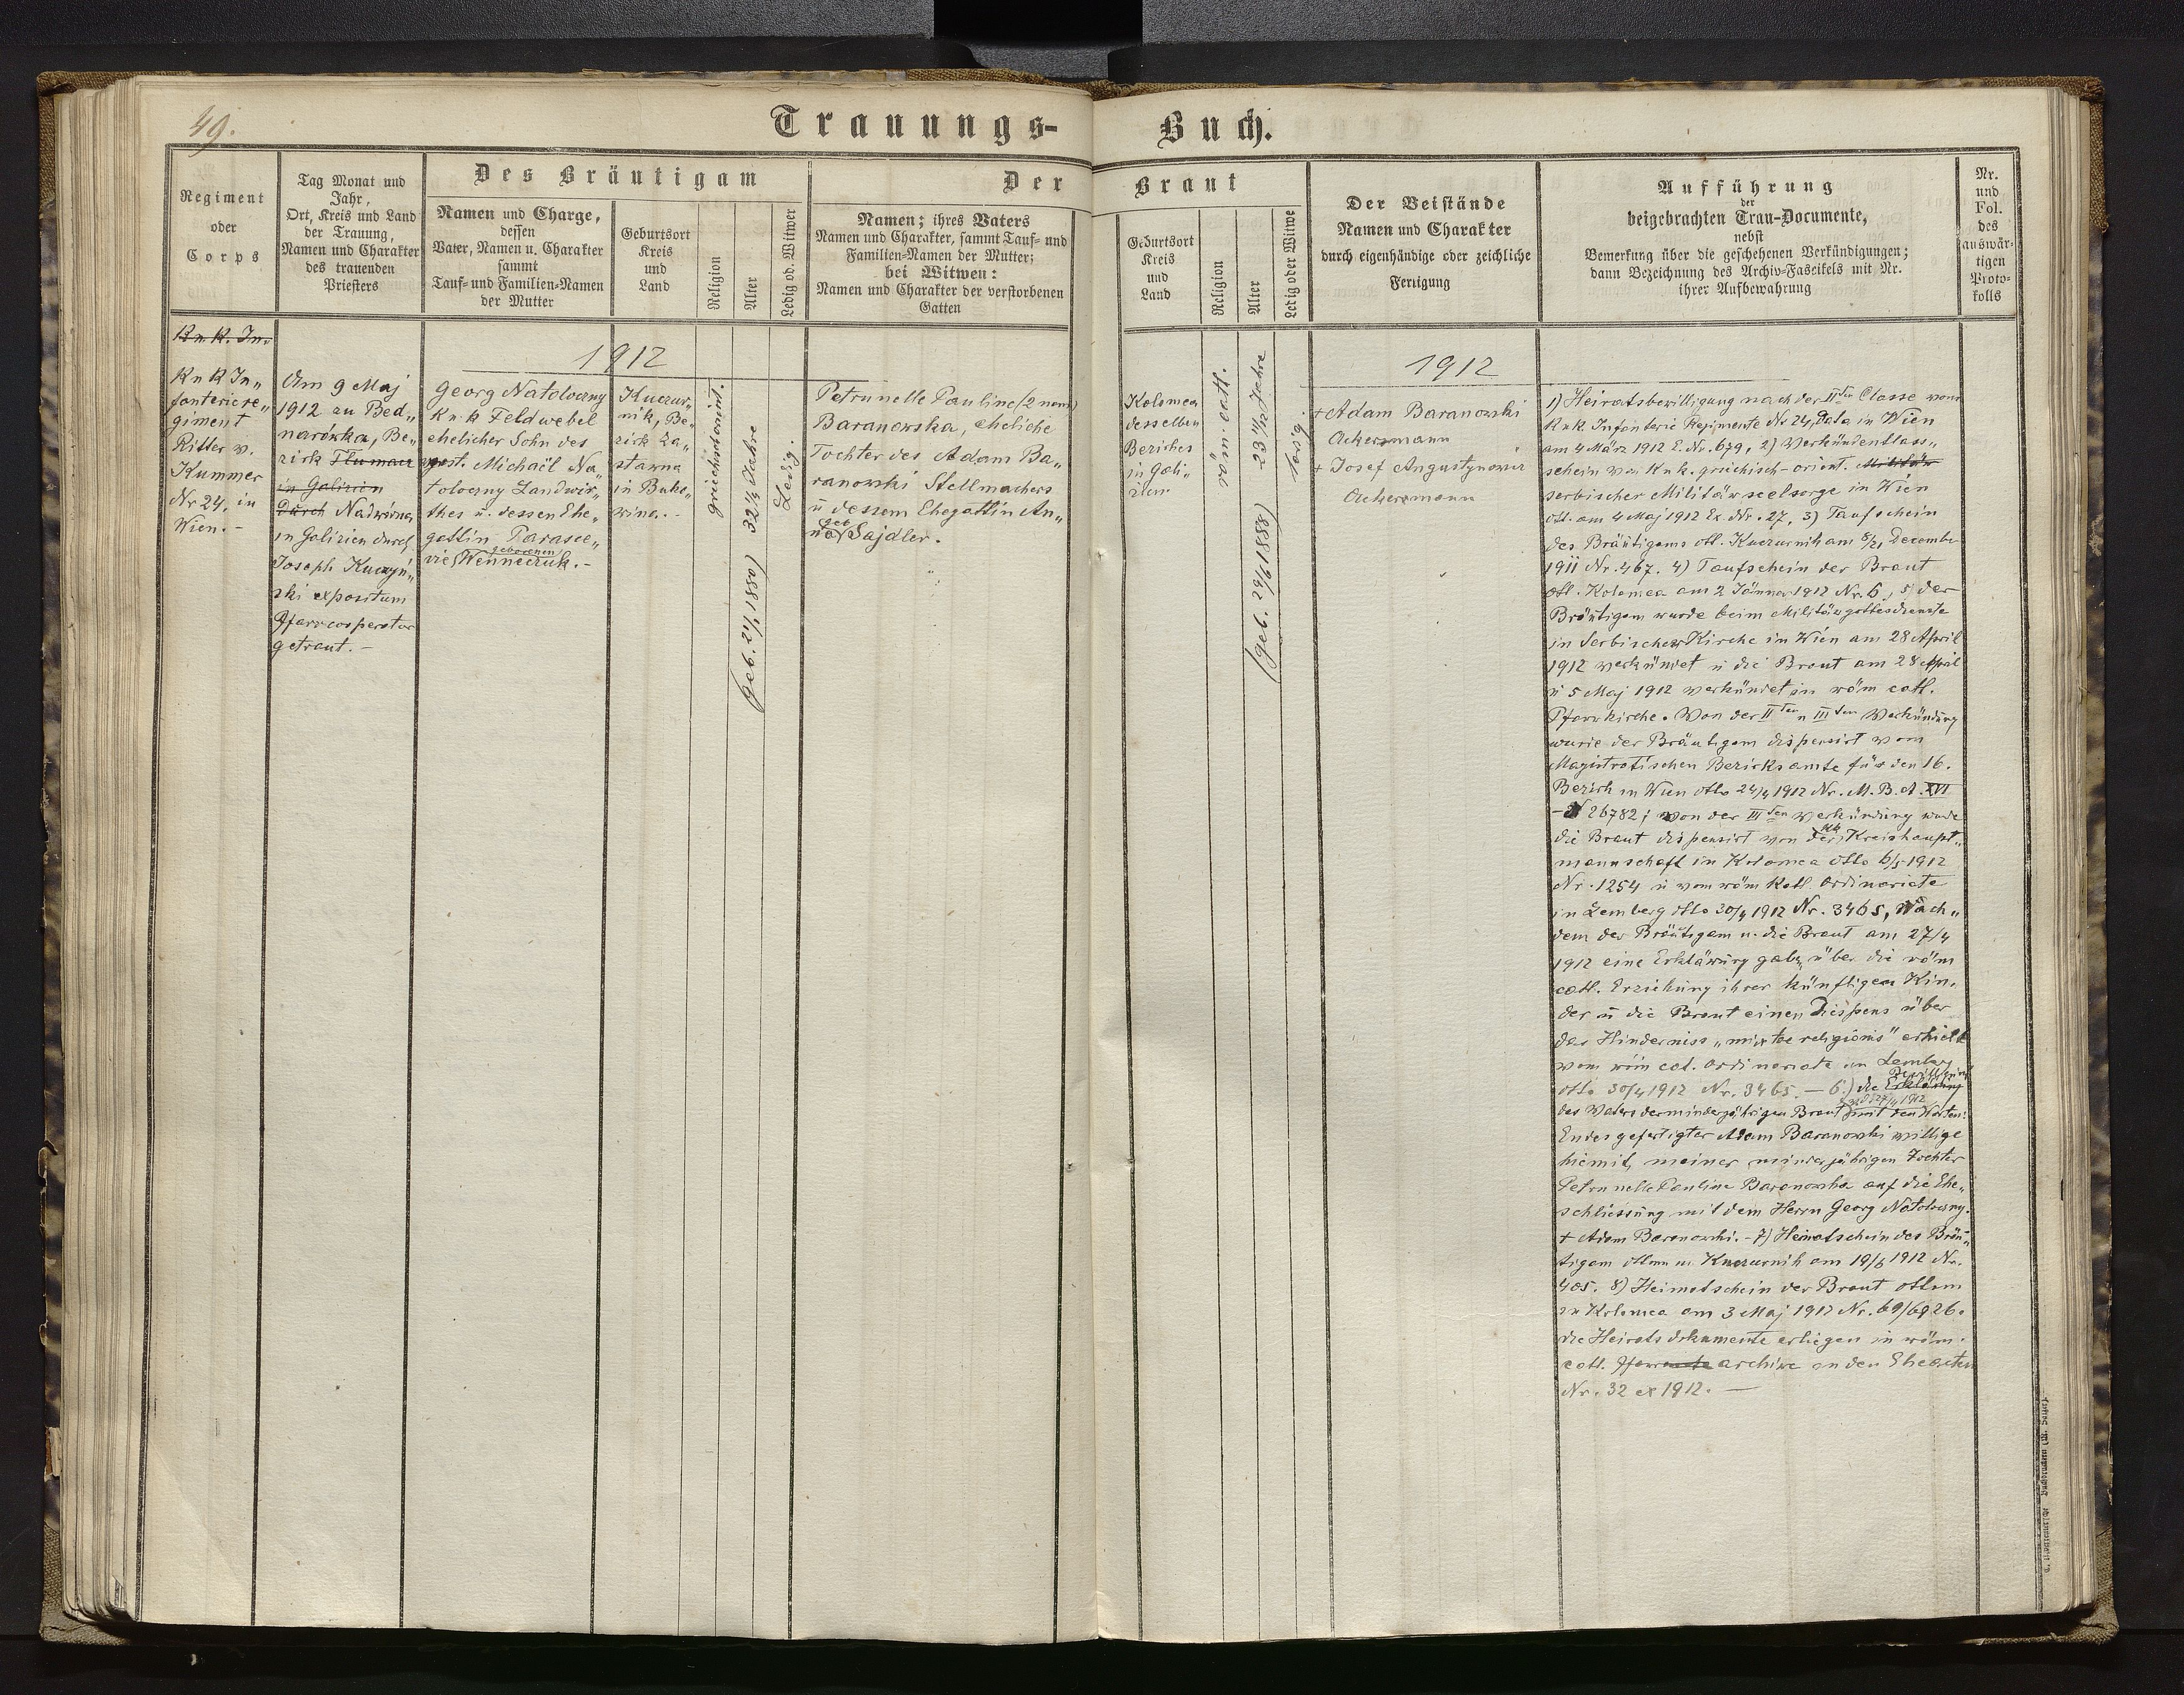 49.
Trauungs-
Buch.
Regiment
oder
Corps
Tag Monat und
Jahr,
Ort, Kreis und Land
der Trauung,
Namen und Charakter
des trauenden
Priesters
Des Bräutigam
Namen und Charge,
dessen
Vater, Namen u. Charakter
sammt
Tauf- und Familien-Namen
der Mutter
Geburtsort
Kreis
und
Land
Religion
Alter
Ledig od. Witwer
Der
Braut
Namen; ihres Vaters
Namen und Charakter, sammt Tauf- und
Familien-Namen der Mutter;
bei Witwen:
Namen und Charakter der verstorbenen
Gatten
Geburtsort
Kreis
und
Land
Religion
Alter
Ledig oder Witwe
Der Beistände
Namen und Charakter
durch eigenhändige oder zeichliche
Fertigung
Aufführung
der
beigebrachten Trau-Documente,
nebst
Bemerkung über die geschehenen Verkündigungen;
dann Bezeichnung des Archiv-Fascikels mit Nr.
ihrer Aufbewahrung
Nr.
und
Fol.
des
auswär-
tigen
Proto-
kolls
K u. K. In.
K u K In„
fanteriere„
giment
Ritter v.
Kummer
Nr 24, in
Wien. -
Am 9 Maj
1912 zu Bed„
narówka, Be„
zirk Tlumacz
in Galizien
durch Nadwórna
in Galizien durch
Joseph Kuczyń„
ski expositum
Pfarrcooperator
getraut. -
1912
Georg Natoloczny
K u. k Feldwebel
ehelicher Sohn des
Michaël Na„
toloczny Landwir„
thes u. dessen Ehe„
gattin Parasce„
vie geborenen Wenneczuk. -
Kuczur„
nik, Be„
zirk Za„
stawna
in Buko„
wina. -
griech. orient.
32 1/3 Jahre
(geb. 21/1 1880)
Ledig.
Petrunelle Pauline (2 nom)
Baranowska, eheliche
Tochter des Adam Ba„
ranowski Stellmachers
u dessem Ehegattin An„
na geb Sajdler.
Kolomea
desselben
Bezirkes
in Gali„
zien
röm. catl.
23 11/12 Jahre
(geb. 29/6 1888)
ledig
1912
+ Adam Baranowski
Ackersmann
+ Josef Augustynowicz
Ackersmann
1) Heiratsbewilligung nach der IIten Classe vom
K u K Infanterie Regimente Nr 24, Data in Wien
am 4 März 1912 E. Nr. 679, 2) Verkündentlass„
schein von K u k. griechisch-orient. Militär
serbischer Militärseelsorge in Wien
dtt. am 4 Maj 1912 Ex. Nr. 27, 3) Taufschein
des Bräutigams dtt. Kuczurnik am Decembr
1911 Nr. 467. 4) Taufschein der Braut
dtt. Kolomea am 2 Jänner 1912 Nr. 6, 5) der
Bräutigam wurde beim Militärgottesdienste
in Serbischer Kirche in Wien am 28 April
1912 verkündet u die Braut am 28 April
u 5 Maj 1912 verkündet in röm catl.
Pfarrkirche. Von der IIten u IIIten Verkündung
wurde der Bräutigam dispensirt vom
Magistratischen Bezirksamte für den 16.
Bezirk in Wien dtto 24/4 1912 Nr. M. B. A. XVI
- 26782; von der IIIten Verkündung wurde
die Braut dispensirt von der kk Kreishaupt„
mannschaft in Kolomea dtto 6/5 1912
Nr. 1254 u vom röm Katl. Ordinariate
in Lemberg dtto 30/4 1912 Nr. 3465, Nach„
dem der Bräutigam u. die Braut am 27/4
1912 eine Erklärung gab über die röm
catl. Erziehung ihrer künftigen Kin„
der u die Braut einen Dispens über
das Hinderniss „mixtae religionis" erhielt
vom röm cat. Ordinariate in Lemberg
dtto 30/4 1912 Nr. 3465. - 6.) die Erklärung Bewilligung
des Vaters der minderjährigen Braut mit den Worten:
Endesgefertigter Adam Baranowski willige
hiemit, meiner minderjährigen Tochter
Petrunelle Pauline Baranowska auf die Ehe„
schliessung mit dem Herrn Georg Natoloczny.
+ Adam Baranowski. - 7) Heimatschein des Bräu„
tigam dttm in Kuczurnik am 19/6 1912 Nr.
405. 8) Heimatschein der Braut dttm
in Kolomea am 3 Maj 1912 Nr. 69/6926.
die Heiratsdokumente erliegen in röm.
catl. Pfarr archive an den Eheacten
Nr. 32 ex 1912. -